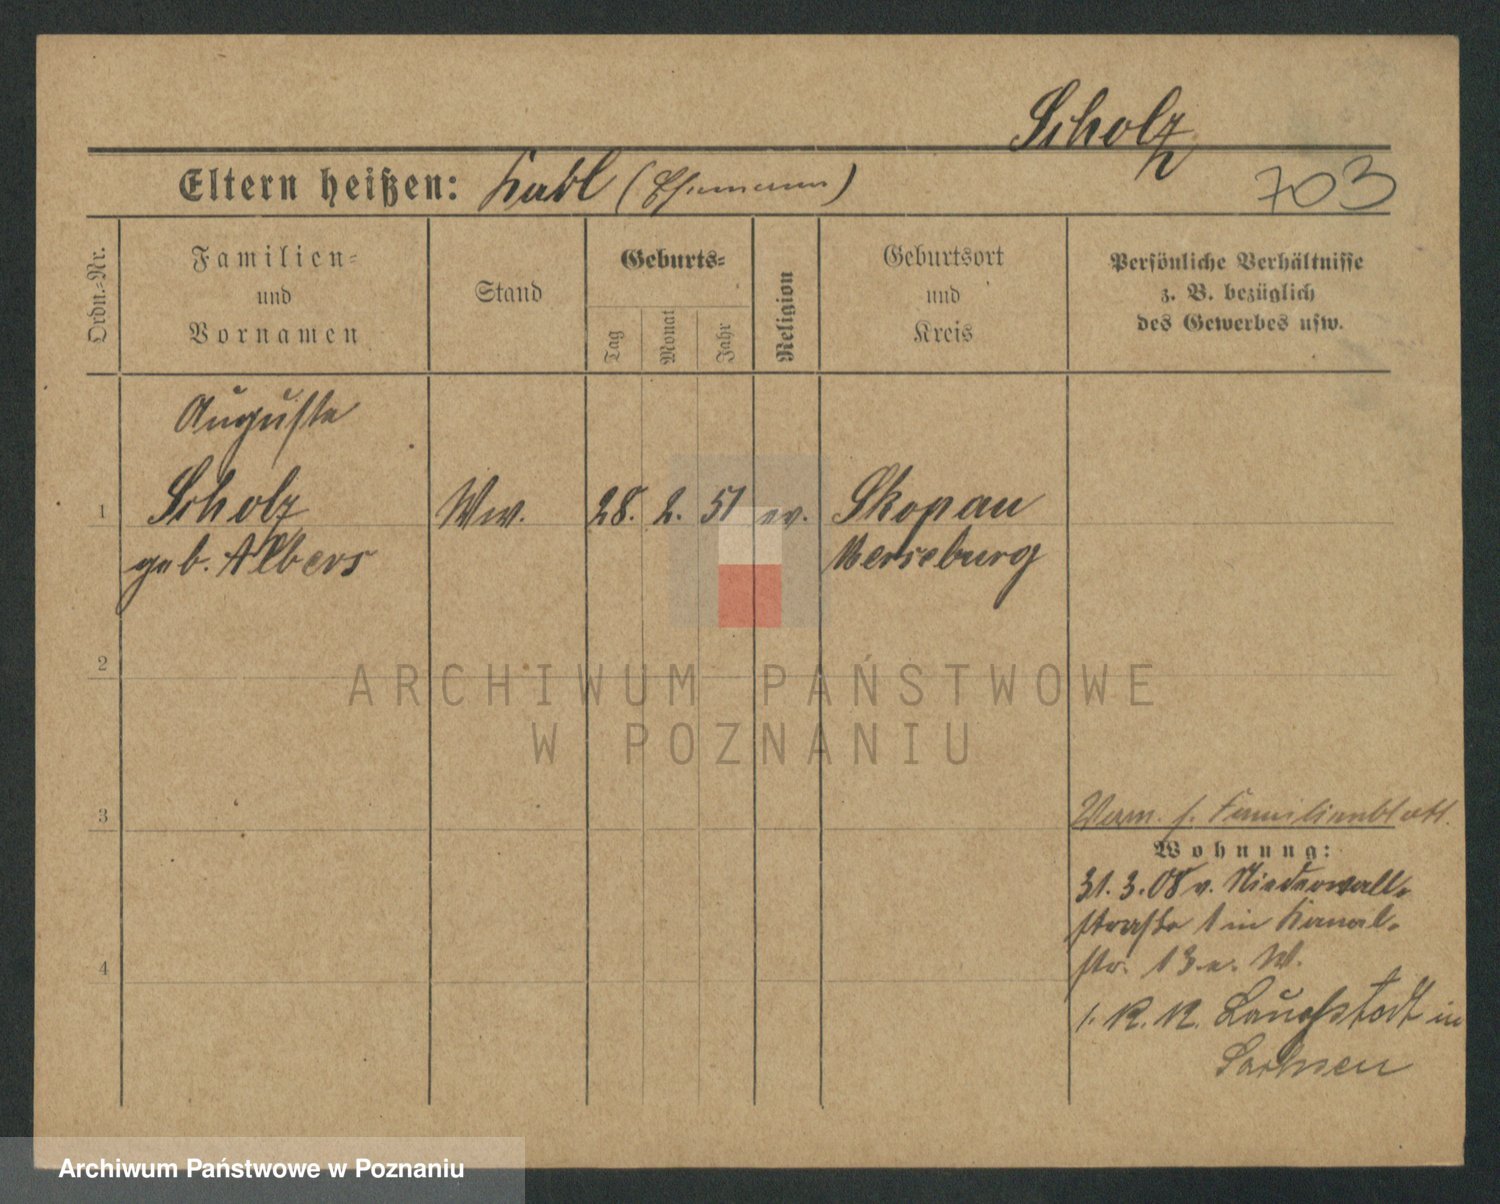 Scholz
Eltern heißen: Karl (Ehemann)
703
Ordn.-Nr.
Familien-
und
Vornamen
Stand
Geburts-
Tag
Monat
Jahr
Religion
Geburtsort
und
Kreis
Persönliche Verhältnisse
z. B. bezüglich
des Gewerbes usw.
Auguste
1 Scholz Ww. 28. 2. 51 ev. Skopau
geb. Albers Merseburg
2
3
4
Verm. s. Familienblatt.
Wohnung:
31.3.08 v. Niederwall-
straße 1 in Kanal-
str. 13 W.
Lauchstedt in
Sachsen
ARCHIWUM PAŃSTWOWE
W POZNANIU
Archiwum Państwowe w Poznaniu